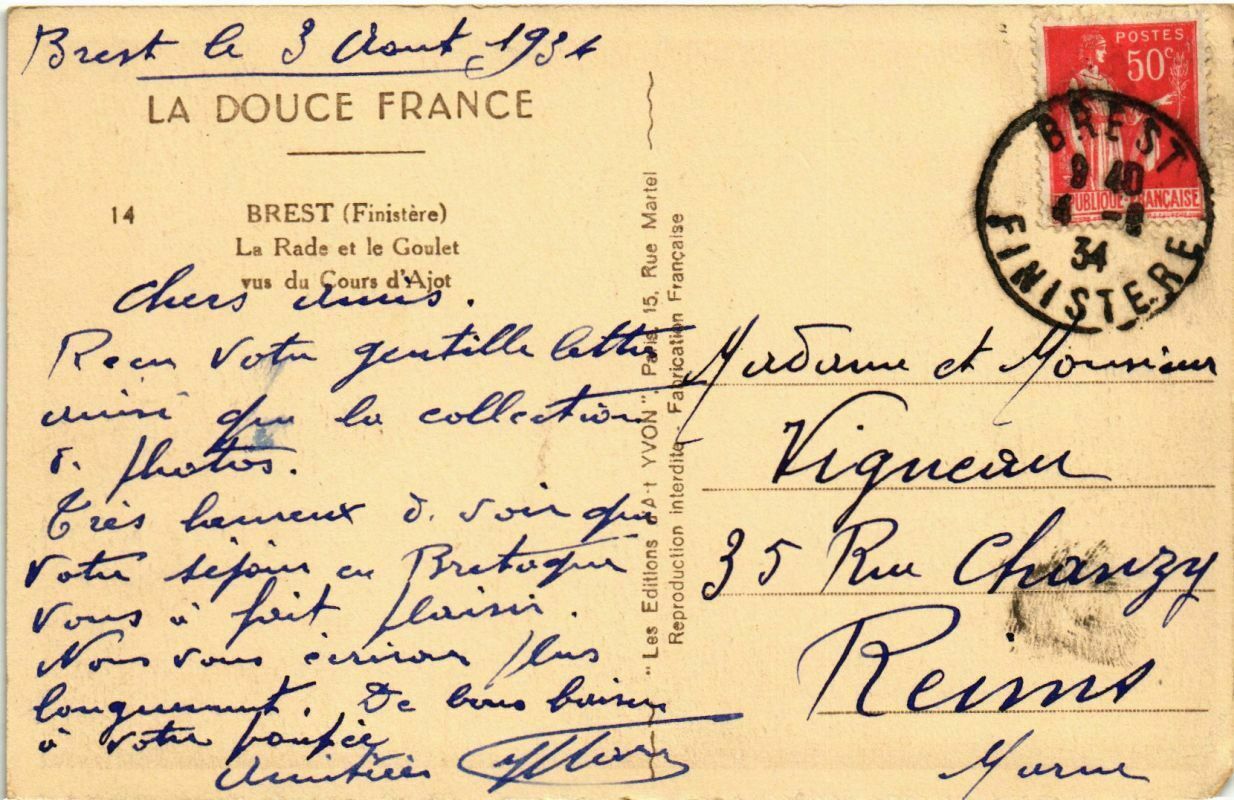 Brest le 3 Aout 1934
LA DOUCE FRANCE
14 BREST (Finistère)
La Rade et le Goulet
vus du Cours d'Ajot
Chers amis.
Reçu votre gentille lettre
ainsi que la collection
de photos.
Très heureux de voir que
votre séjour en Bretagne
vous à fait plaisir.
Nous vous écrirons plus
longuement. De bons baisers
à votre poupée
Amitiés
"Les Editions d'Art YVON". Paris, 15, Rue Martel
Reproduction interdite. Fabrication Française
POSTES
50c
RÉPUBLIQUE FRANÇAISE
BREST
9 40
34
FINISTERE
Madame et Monsieur
Vigneau
35 Rue Chanzy
Reims
Marne